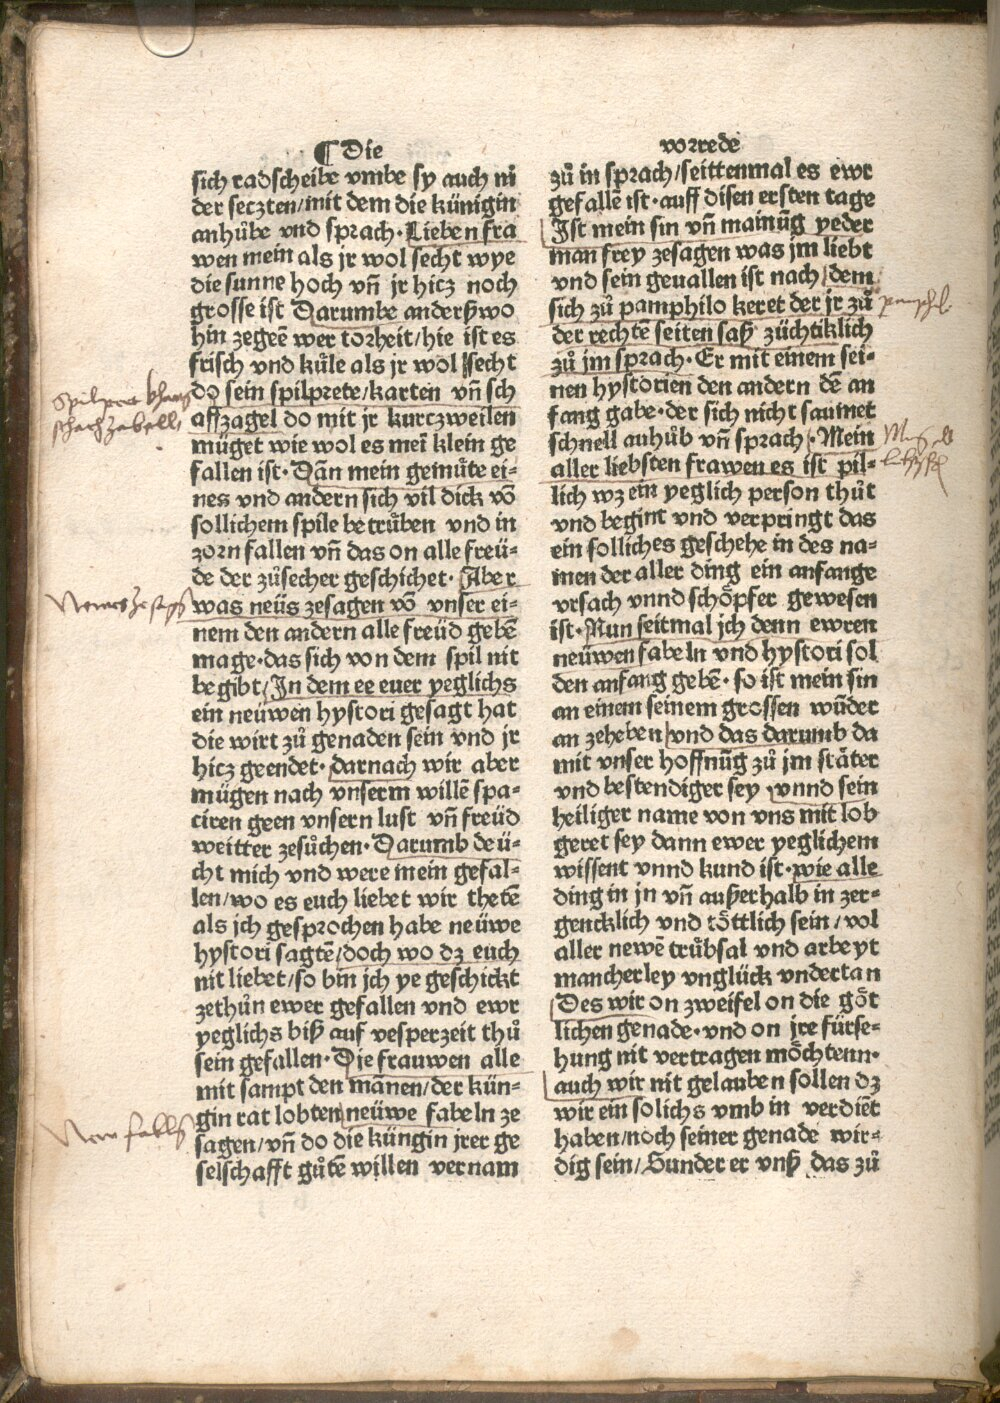 ¶ Die
sich radscheibe vmbe sy auch ni
der seczten/mit dem die künigin
anhůbe vnd sprach·Lieben fra
wen mein als jr wol secht wye
die sunne hoch vñ jr hicz noch
grosse ist Darumbe anderßwo
hin zegeē wer torheit/hie ist es
frisch vnd kůle als jr wol secht
do sein spilprete/karten vñ sch
affzagel do mit jr kurczweilen
müget wie wol es meī klein ge
fallen ist·Dān mein gemüte ei⸗
nes vnd andern sich vil dick vō
sollichem spile betrůben vnd in
zorn fallen vñ das on alle freü⸗
de der zůsecher geschichet·Aber
was neüs zesagen vō vnser ei⸗
nem den andern alle freüd gebē
mage·das sich von dem spil nit
begibt/In dem ee euer yeglichs
ein neüwen hystori gesagt hat
die wirt zů genaden sein vnd jr
hicz geendet·darnach wir aber
mügen nach vnserm willē spa⸗
ciren geen vnsern lust vñ freüd
weitter zesůchen·Darumb deü⸗
cht mich vnd were mein gefal⸗
len/wo es euch liebet wir thetē
als jch gesprochen habe neüwe
hystori sagtē/doch wo dz euch
nit liebet/so bin jch ye geschickt
zethůn ewer gefallen vnd ewr
yeglichs biß auf vesperzeit thů
sein gefallen·Die frauwen alle
mit sampt den mānen/der kün⸗
gin rat lobten neüwe fabeln ze
sagen/vñ do die küngin jrer ge
selschafft gůtē willen vernam
vorrede
zů in sprach/seittenmal es ewr
gefallē ist·auff disen ersten tage
Ist mein sin vñ mainūg yeder
man frey zesagen was jm liebt
vnd sein geuallen ist nach dem
sich zů pamphilo keret der jr zů
der rechtē seiten saß züchtiklich
zů jm sprach·Er mit einem sei⸗
nen hystorien den andern dē an
fang gabe·der sich nicht saumet
schnell anhůb vñ sprach·Mein
aller liebsten frawen es ist pil⸗
lich wz ein yeglich person thůt
vnd begint vnd verpringt das
ein solliches geschehe in des na⸗
men der aller ding ein anfange
vrsach vnnd schöpfer gewesen
ist·Nun seitmal jch denn ewren
neüwen fabeln vnd hystori sol
den anfang gebē·so ist mein sin
an einem seinem grossen wūder
an zeheben vnd das darumb da
mit vnser hoffnūg zů jm stäter
vnd bestendiger sey vnnd sein
heiliger name von vns mit lob
geret sey dann ewer yeglichem
wissent vnnd kund ist·wie alle
ding in jn vñ außerhalb in zer⸗
gencklich vnd töttlich sein/vol
aller newē trůbsal vnd arbeyt
mancherley vnglück vndertan
Des wir on zweifel on die göt
lichen genade·vnd on jre fürse⸗
hung nit vertragen möchtenn·
auch wir nit gelauben sollen dz
wir ein solichs vmb in verdiēt
haben/noch seiner genade wir⸗
dig sein/Sunder er vnß das zů